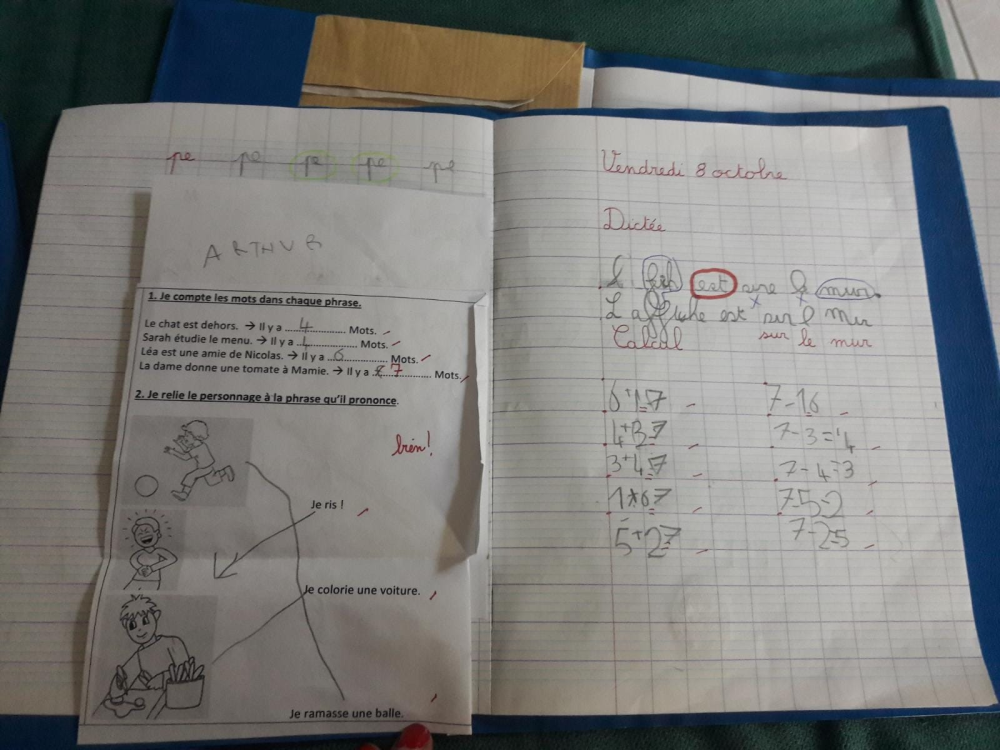 pe pe pe pe pe
ARTHUR
1. Je compte les mots dans chaque phrase.
Le chat est dehors. → Il y a ....4.... Mots.
Sarah étudie le menu. → Il y a ....4.... Mots.
Léa est une amie de Nicolas. → Il y a ....6.... Mots.
La dame donne une tomate à Mamie. → Il y a ....7.... Mots.
2. Je relie le personnage à la phrase qu'il prononce.
bien!
Je ris !
Je colorie une voiture.
Je ramasse une balle.
Vendredi 8 octobre
Dictée
est sure le mur.
est sur l mur
Calcul sur le mur
6+1=7 7-1=6
4+3=7 7-3=4
3+4=7 7-4=3
1+6=7 7-5=2
5+2=7 7-2=5